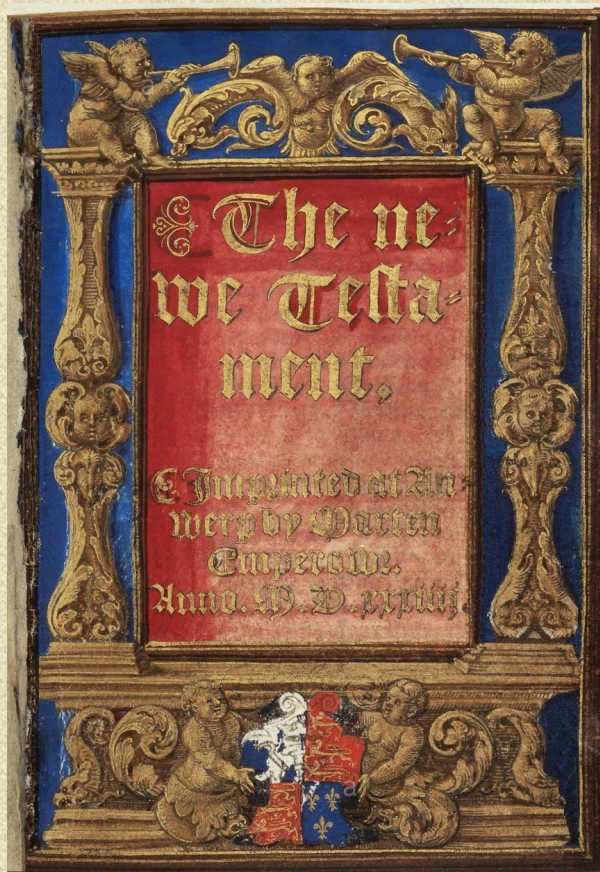 The ne⸗
we Testa⸗
ment.
Imprinted at An⸗
werp by Marten
Emperowr.
Anno. M. D. xxxiiij.